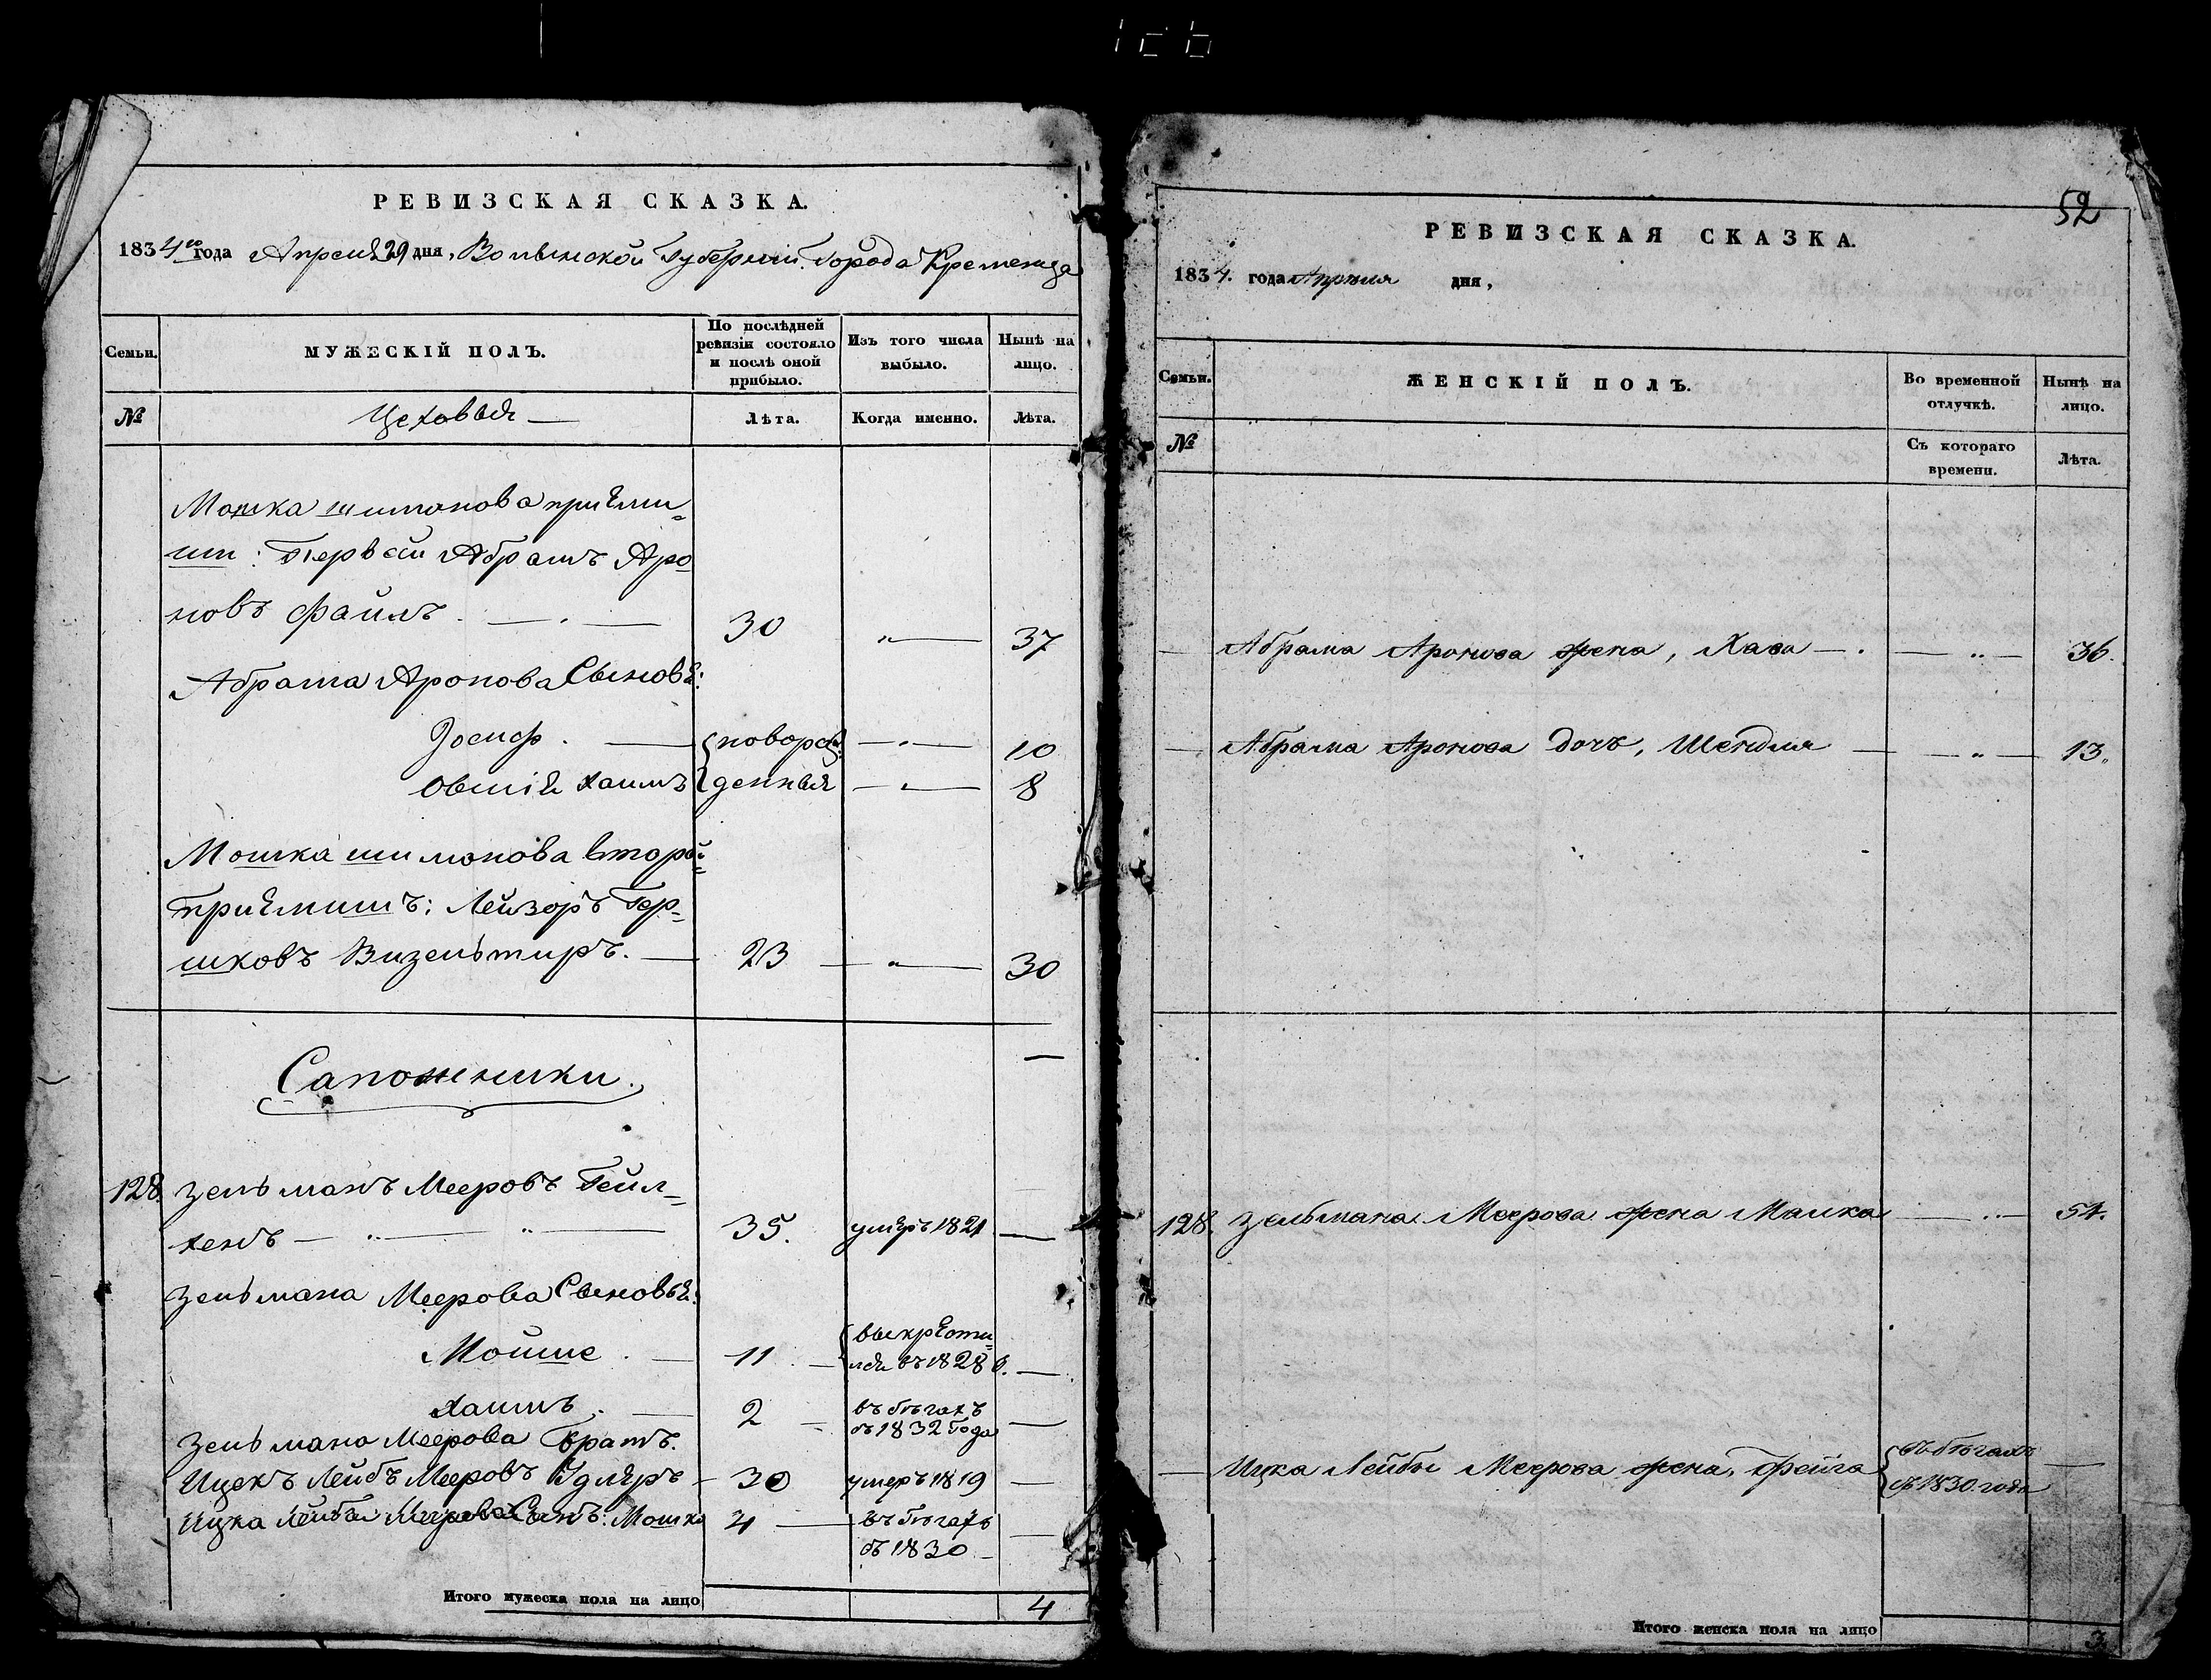 РЕВИЗСКАЯ СКАЗКА.
1834го года Апреля 29 дня, Волынской Губернии. Города Кременца
Семьи.
МУЖЕСКІЙ ПОЛЪ.
По послѣдней ревизіи состояло и послѣ оной прибыло.
Изъ того числа выбыло.
Нынѣ на лицо.
№
Цеховыя —
Лѣта.
Когда именно.
Лѣта.
Мошка Шимонова приёмы=
ши: Первый Абрамъ Аро
новъ Файлъ. — . — 30 „ — 37
Абрама Аронова Сыновя:
Іосиф . — новорож 10
Овшія Хаимъ денныя 8
Мошка шимонова второй=
приёмышъ: Лейзоръ Гер=
шковъ Визельтиръ. — 23 — „ — 30
Сапожники.
128. Зельманъ Мееровъ Гейл=
хенъ — „ — „ — 35. умеръ 1821 —
Зельмана Меерова Сыновья:
Мойше . — 11 . — выкрести=
лся въ 1828 г. —
Хаимъ . — 2 — въ бѣгахъ
съ 1832 Года —
Зельмана Меерова братъ.
Ицекъ Лейбъ Мееровъ — 30 умеръ 1819 —
Ицка Лейбы Меерова Сынъ: Мошко 4 — въ бѣгахъ
съ 1830 —
Итого мужеска пола на лицо 4
52
РЕВИЗСКАЯ СКАЗКА.
1834. года Апреля дня,
Семьи.
ЖЕНСКІЙ ПОЛЪ.
Во временной отлучкѣ.
Нынѣ на лицо.
№
Съ котораго времени.
Лѣта.
— Абрама Аронова жена, Хава — . — „ — 36.
— Абрама Аронова дочь, Шендля — — „ — 13.
128. Зельмана Меерова жена Малка — „ — 54.
— Ицка Лейбы Меерова жена, Фейга въ бѣгахъ
съ 1830. года —
Итого женска пола на лицо 3